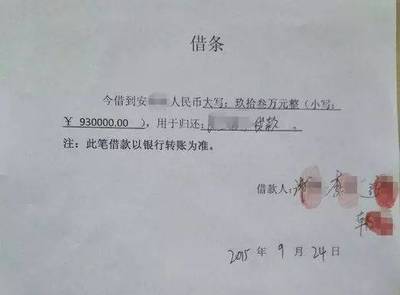 借条
今借到安 人民币大写：玖拾叁万元整（小写：
￥ 930000.00 ），用于归还： 贷款 。
注：此笔借款以银行转账为准。
借款人： 李
2015 年 9 月 24 日